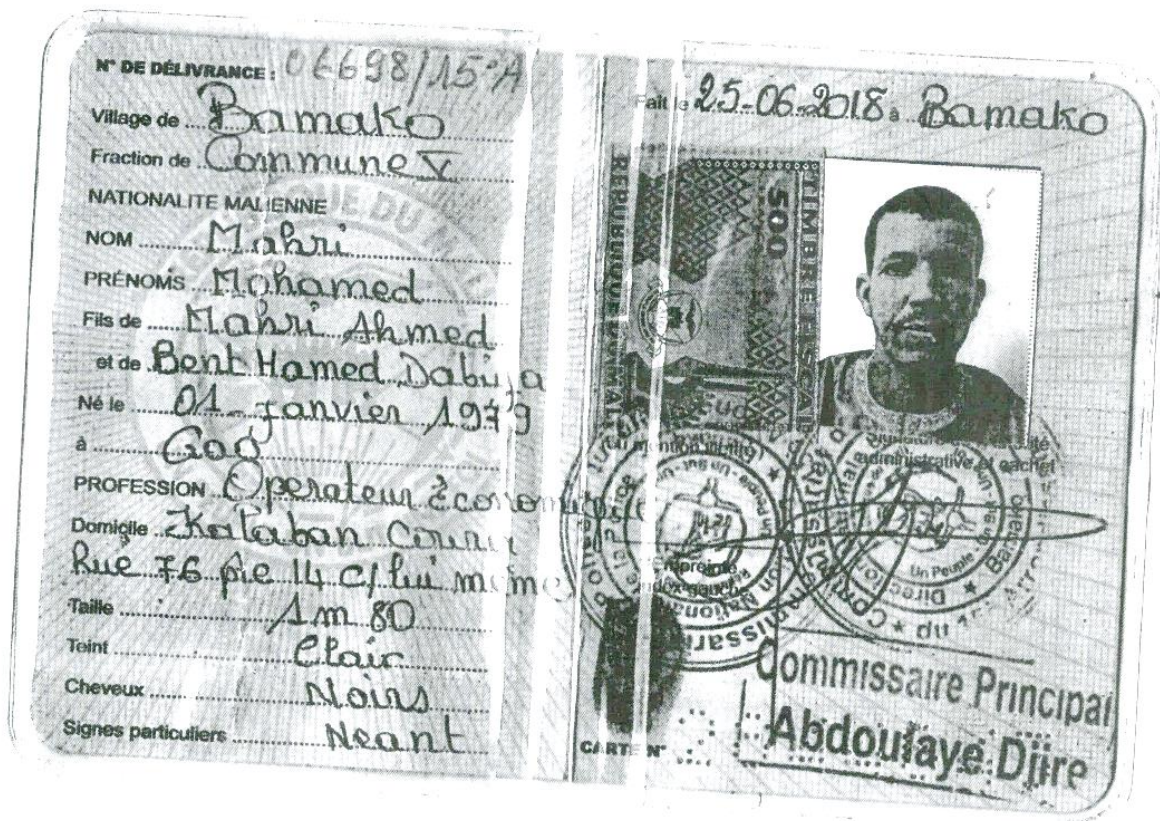 N° DE DÉLIVRANCE: 06698/15°A
Village de Bamako
Fraction de Commune V
NATIONALITE MALIENNE
NOM Mahri
PRÉNOMS Mohamed
Fils de Mahri Ahmed
et de Bent Hamed Dabuja
Né le 01 Janvier 1979
à Gao
PROFESSION Operateur Économique
Domicile Kalaban Coura
Rue 76 pie 14 c/ lui même
Taille 1m 80
Teint Clair
Cheveux Noirs
Signes particuliers Neant
Fait le 25-06-2018 à Bamako
REPUBLIQUE DU MALI
500
TIMBRE FISCAL
administrative et cachet
Un Peuple
Bamako
CARTE N°
Commissaire Principal
Abdoulaye Djire